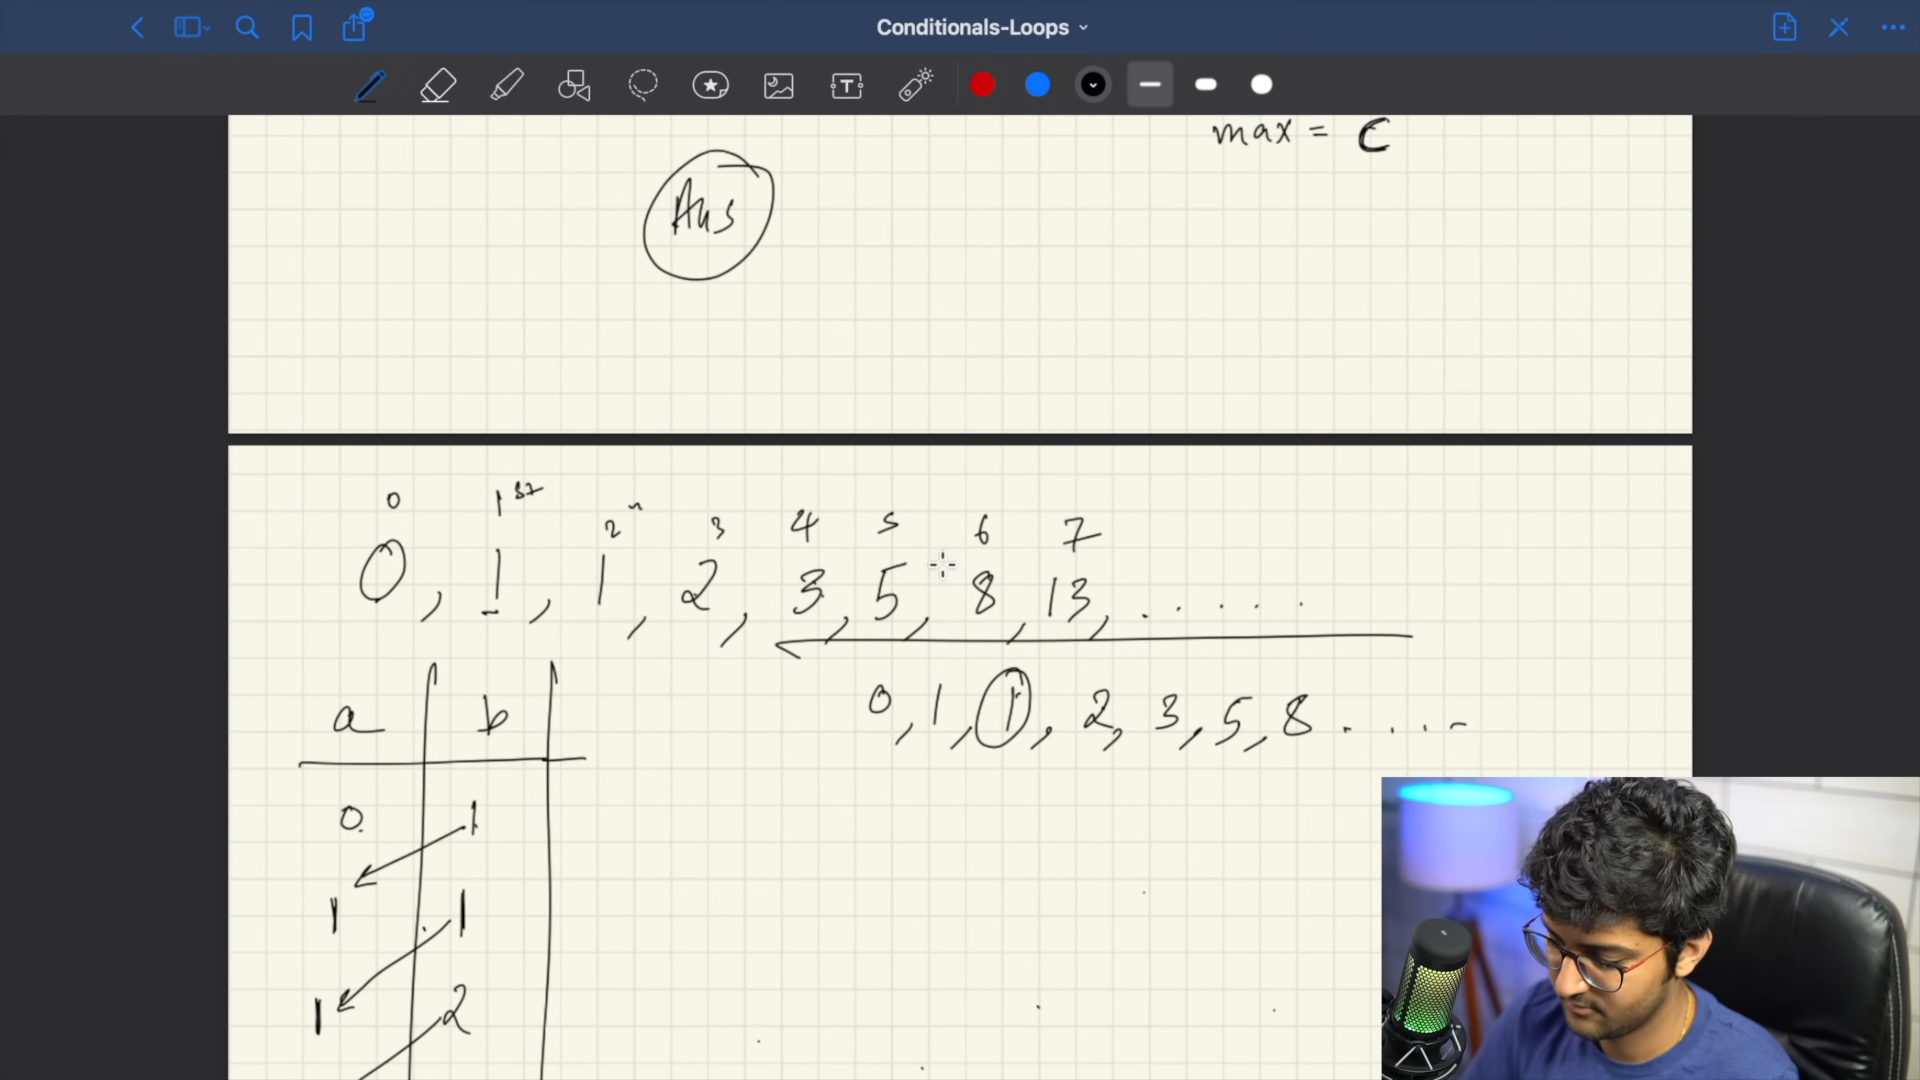 Conditionals-Loops
max = C
Ans
0 1st 2n 3 4 5 6 7
0, 1, 1, 2, 3, 5, 8, 13, . . . . .
a b
0, 1, 1, 2, 3, 5, 8 . . . . -
0 1
1 1
1 2